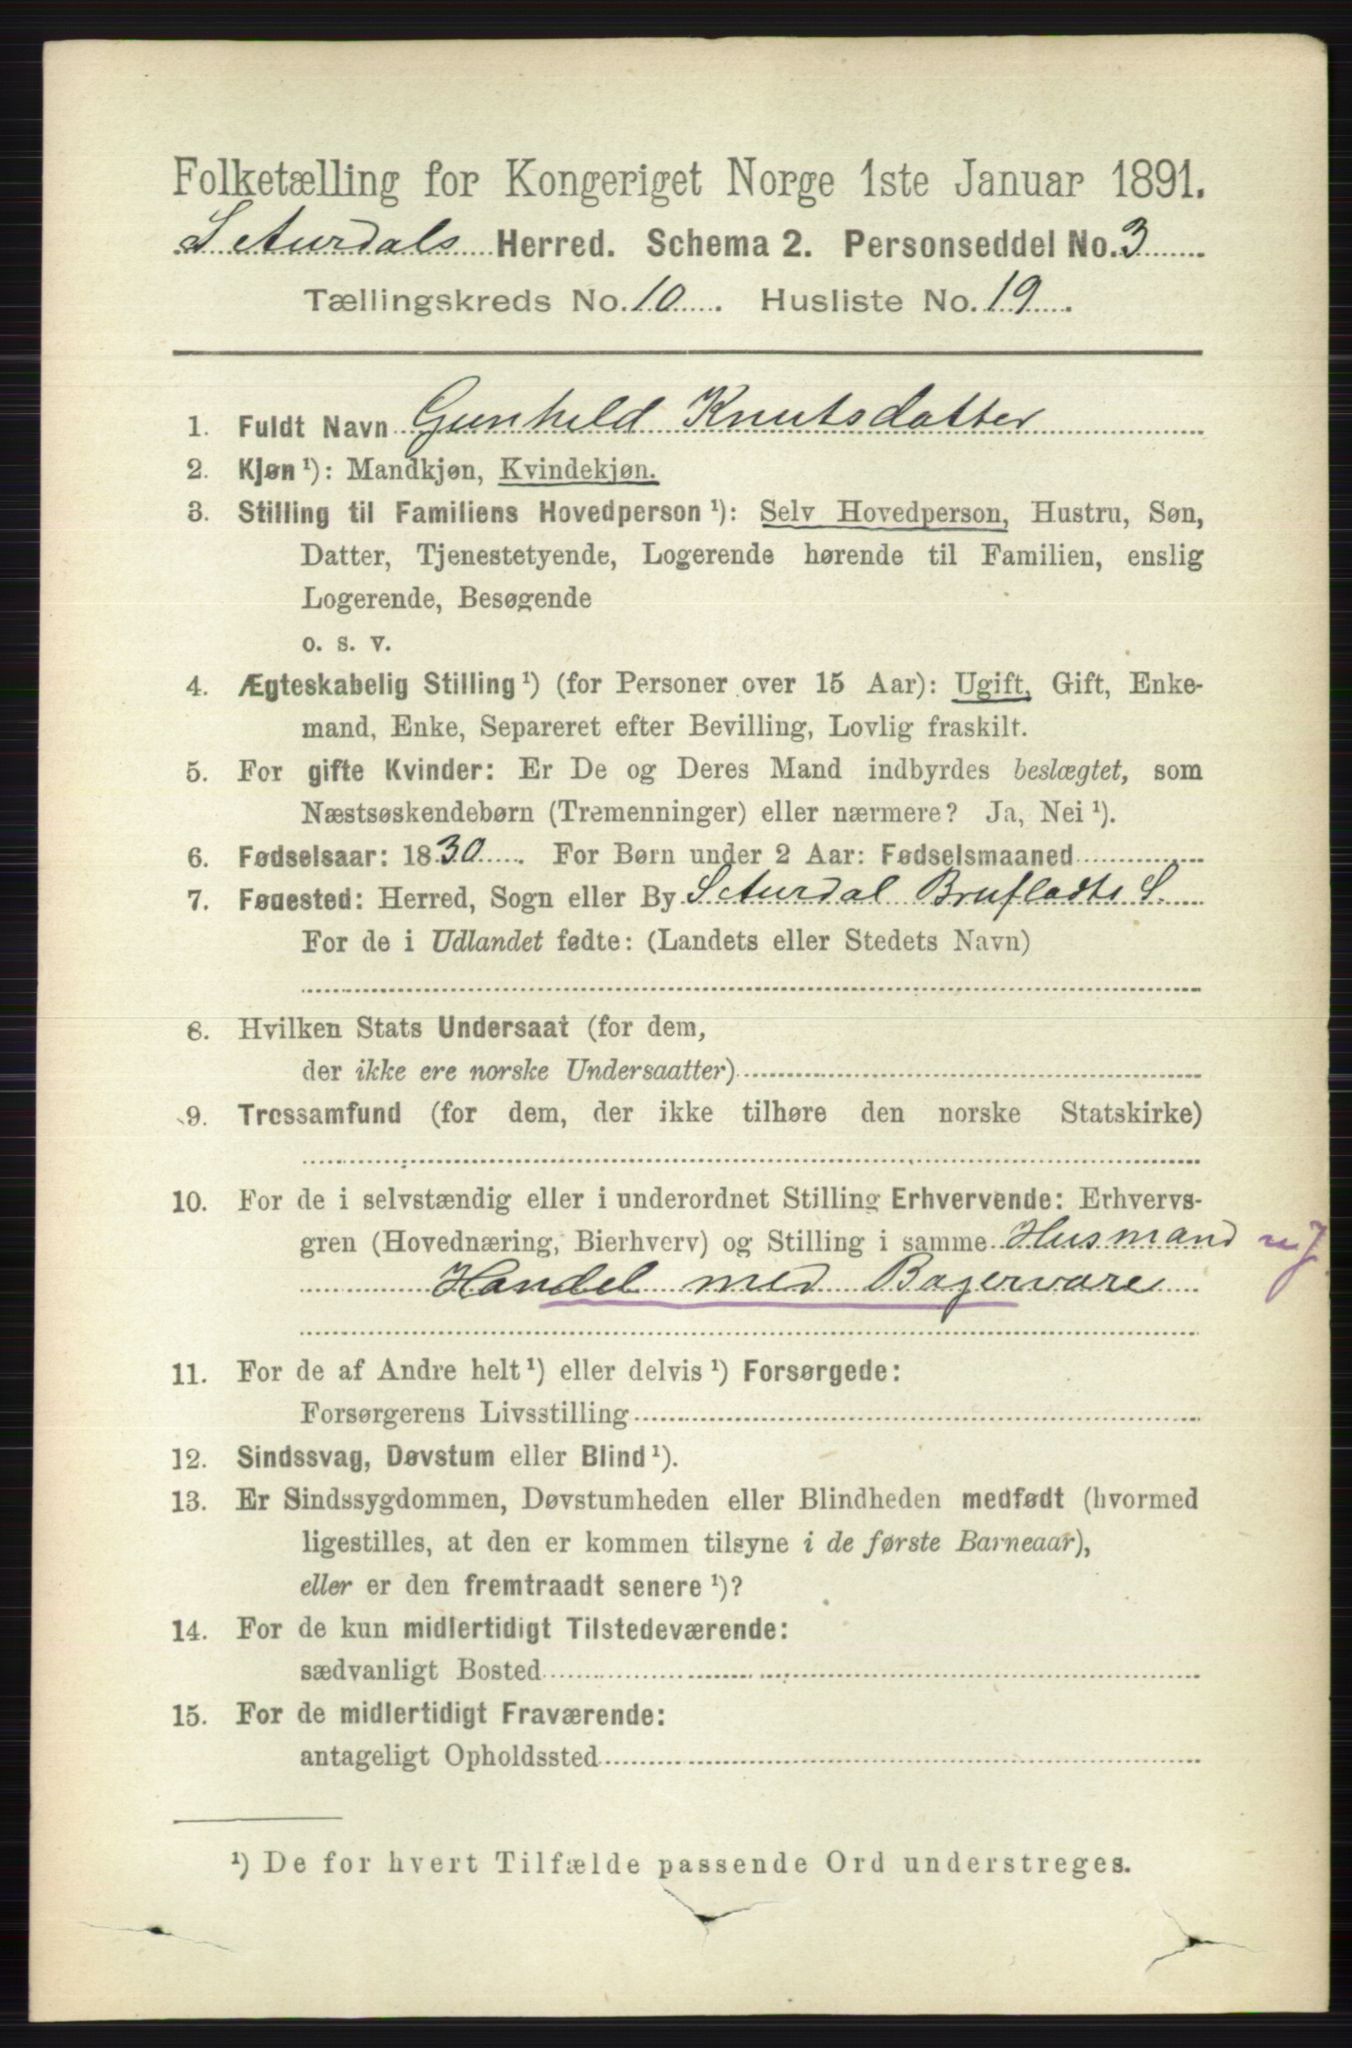 Folketælling for Kongeriget Norge 1ste Januar 1891.
S Aurdals Herred. Schema 2. Personseddel No. 3
Tællingskreds No. 10. Husliste No. 19.
1. Fuldt Navn Gunhild Knutsdatter
2. Kjøn ¹): Mandkjøn, Kvindekjøn.
3. Stilling til Familiens Hovedperson ¹): Selv Hovedperson, Hustru, Søn,
Datter, Tjenestetyende, Logerende hørende til Familien, enslig
Logerende, Besøgende
o. s. v.
4. Ægteskabelig Stilling ¹) (for Personer over 15 Aar): Ugift, Gift, Enke-
mand, Enke, Separeret efter Bevilling, Lovlig fraskilt.
5. For gifte Kvinder: Er De og Deres Mand indbyrdes beslægtet, som
Næstsøskendebørn (Tremenninger) eller nærmere? Ja, Nei ¹).
6. Fødselsaar: 1830. For Børn under 2 Aar: Fødselsmaaned
7. Fødested: Herred, Sogn eller By S Aurdal Brufladts S.
For de i Udlandet fødte: (Landets eller Stedets Navn)
8. Hvilken Stats Undersaat (for dem,
der ikke ere norske Undersaatter)
9. Trossamfund (for dem, der ikke tilhøre den norske Statskirke)
10. For de i selvstændig eller i underordnet Stilling Erhvervende: Erhvervs-
gren (Hovednæring, Bierhverv) og Stilling i samme Husmand
Handel med Bagervare
11. For de af Andre helt ¹) eller delvis ¹) Forsørgede:
Forsørgerens Livsstilling
12. Sindssvag, Døvstum eller Blind ¹).
13. Er Sindssygdommen, Døvstumheden eller Blindheden medfødt (hvormed
ligestilles, at den er kommen tilsyne i de første Barneaar),
eller er den fremtraadt senere ¹)?
14. For de kun midlertidigt Tilstedeværende:
sædvanligt Bosted
15. For de midlertidigt Fraværende:
antageligt Opholdssted
¹) De for hvert Tilfælde passende Ord understreges.